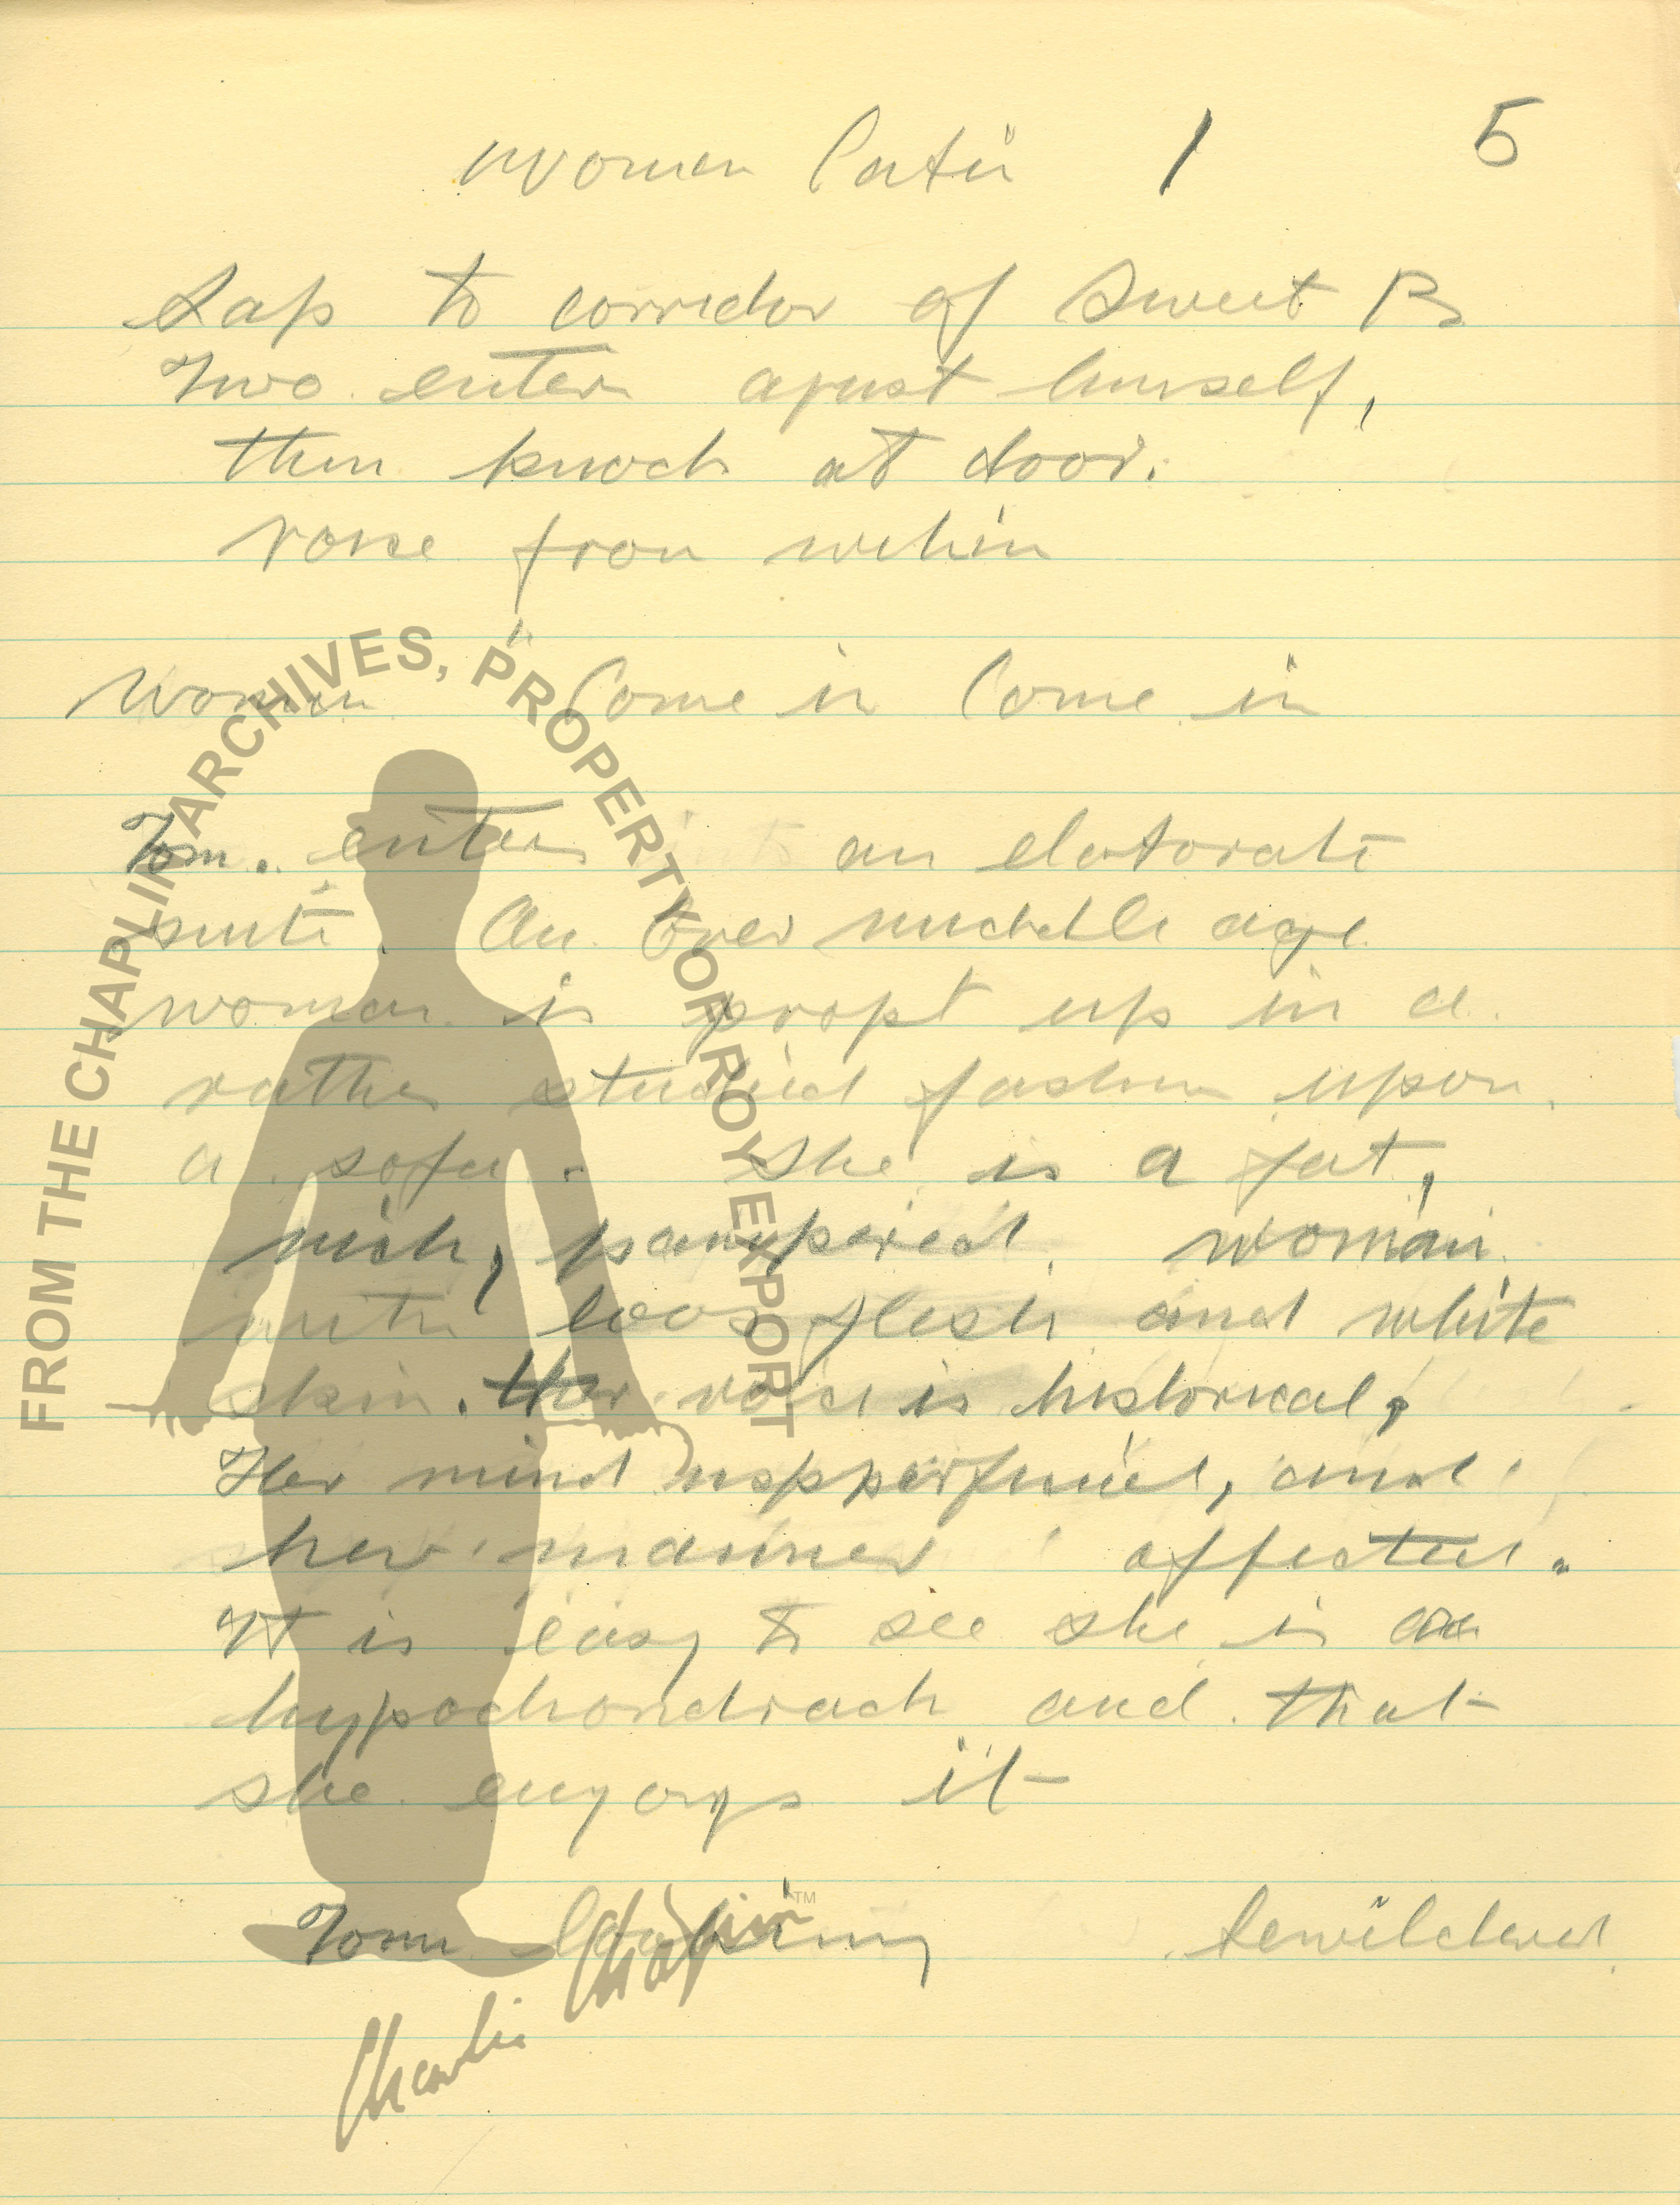 women Latin 1 5
Lap to corridor of Sweet B
Two enter ajust himself,
then knock at door.
voise from within
Women Come in Come in
Tom. enters into an elaborate
suite. An over middle age
woman is propt up in a
rather studied fashion upon
a sofa. She is a fat,
rich, pampered woman
with loos flesh and white
skin. Her voice is historical,
Her mind perfumed, and
her manner affected.
It is easy to see she is a
hypochondriach and that
she enyoys it
Tom looking bewildered
FROM THE CHAPLIN ARCHIVES, PROPERTY OF ROY EXPORT
Charlie Chaplin TM